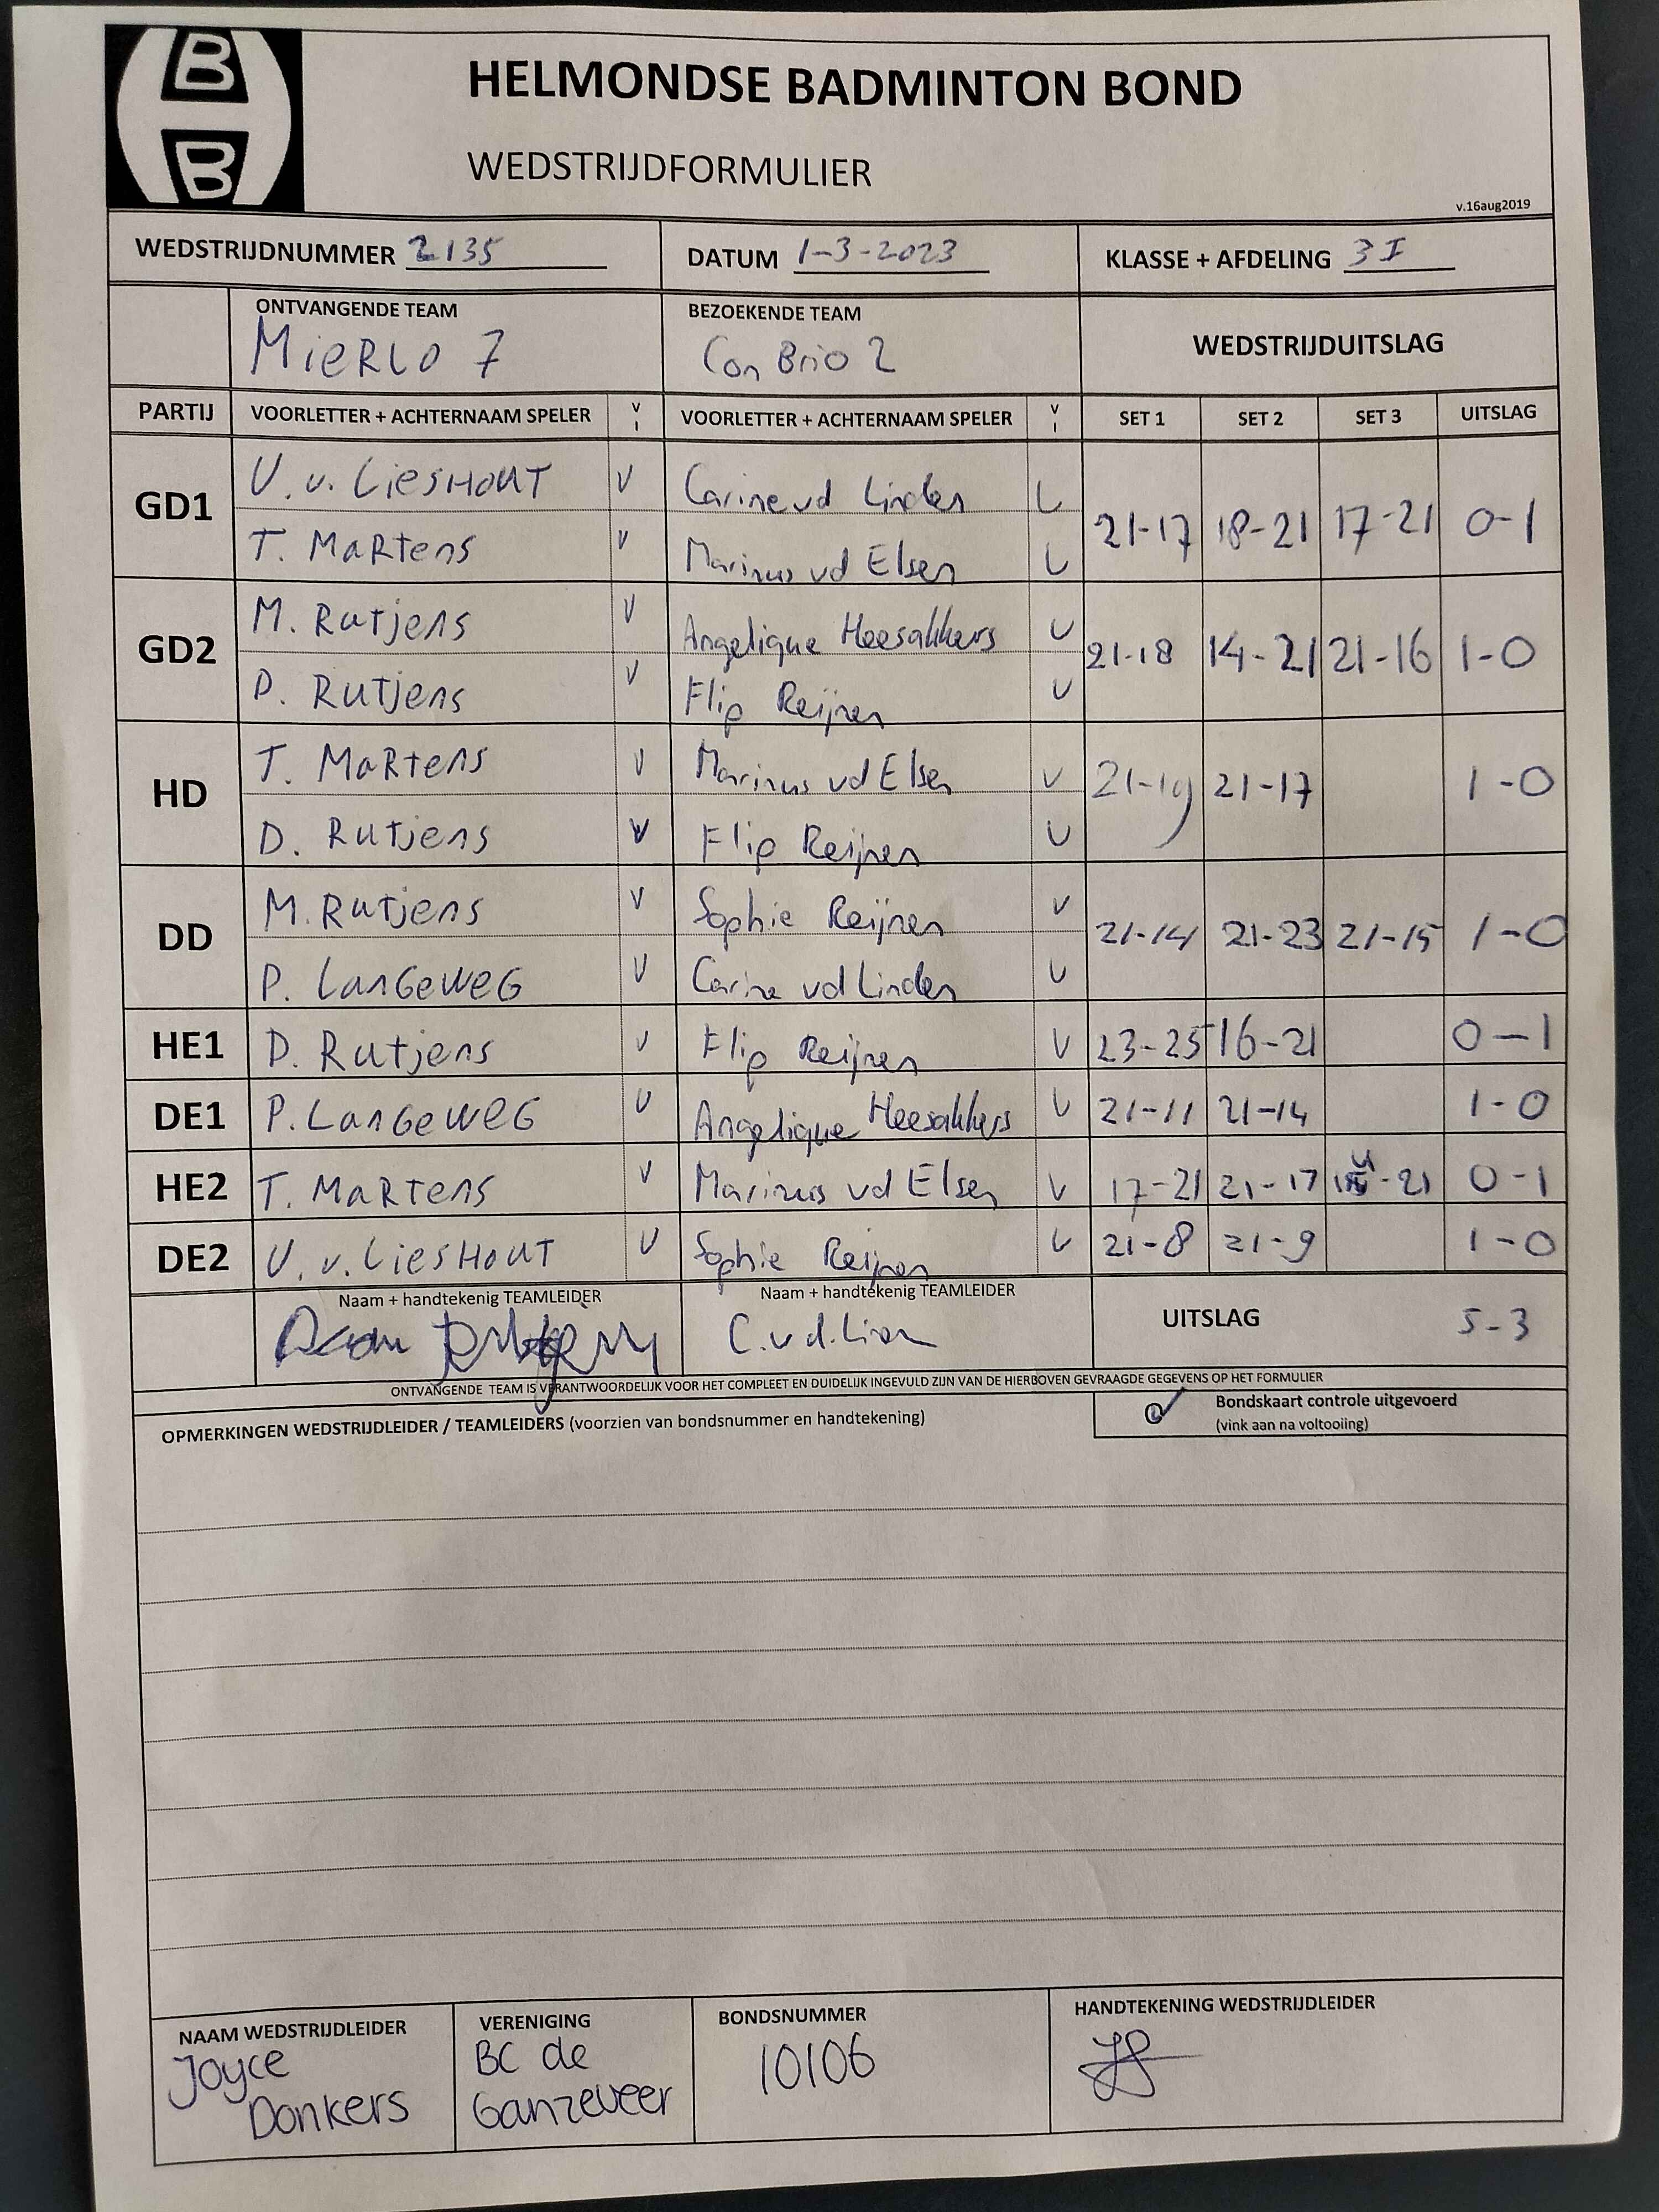 HELMONDSE BADMINTON BOND
WEDSTRIJDFORMULIER
v.16aug2019
WEDSTRIJDNUMMER 2135 DATUM 1-3-2023 KLASSE + AFDELING 3 I
ONTVANGENDE TEAM BEZOEKENDE TEAM WEDSTRIJDUITSLAG
MieRLO 7 Con Brio 2
PARTIJ VOORLETTER + ACHTERNAAM SPELER V I VOORLETTER + ACHTERNAAM SPELER V I SET 1 SET 2 SET 3 UITSLAG
GD1 V. v. LiesHouT V Carine vd Linden V 21-17 18-21 17-21 0-1
T. MaRtens V Marinus vd Elsen V
GD2 M. Rutjens V Angelique Heesakkers V 21-18 14-21 21-16 1-0
D. Rutjens V Flip Reijnen V
HD T. MaRtens V Marinus vd Elsen V 21-19 21-17 1-0
D. Rutjens V Flip Reijnen V
DD M. Rutjens V Sophie Reijnen V 21-14 21-23 21-15 1-0
P. LanGeweG V Carine vd Linden V
HE1 D. Rutjens V Flip Reijnen V 23-25 16-21 0-1
DE1 P. LanGeweG V Angelique Heesakkers V 21-11 21-14 1-0
HE2 T. MaRtens V Marinus vd Elsen V 17-21 21-17 -21 0-1
DE2 V. v. LiesHouT V Sophie Reijnen V 21-8 21-9 1-0
Naam + handtekenig TEAMLEIDER Naam + handtekenig TEAMLEIDER UITSLAG 5-3
C.v.d.Linden
ONTVANGENDE TEAM IS VERANTWOORDELIJK VOOR HET COMPLEET EN DUIDELIJK INGEVULD ZIJN VAN DE HIERBOVEN GEVRAAGDE GEGEVENS OP HET FORMULIER
OPMERKINGEN WEDSTRIJDLEIDER / TEAMLEIDERS (voorzien van bondsnummer en handtekening)
Bondskaart controle uitgevoerd
(vink aan na voltooiing)
NAAM WEDSTRIJDLEIDER VERENIGING BONDSNUMMER HANDTEKENING WEDSTRIJDLEIDER
Joyce BC de 10106
Donkers Ganzeveer